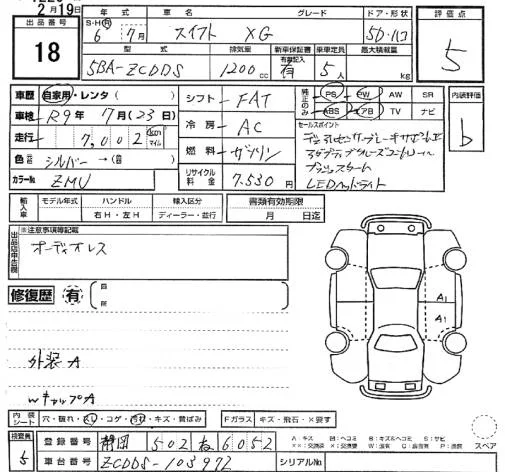 2月19日
出品番号 18
年式 S・H・R 6年 7月
車名 スイフト
グレード XG
ドア・形状 5D・ハコ
評価点 5
型式 5BA-ZCDDS
排気量 1200cc
新車保証書 有
乗車定員 5人
最大積載量 kg
車歴 自家用・レンタ( )
シフト FAT
純正のみ PS PW AW SR
ABS エアB TV ナビ
内装評価 b
車検 R9年 7月(23日)
冷房 AC
セールスポイント
走行 7,002 km マイル
デュアルセンサーブレーキサポートⅡ
アダプティブクルーズコントロール
色 シルバー →( )
燃料 ガソリン
プッシュスタート
カラーNo. ZMU
リサイクル料金 7.530円
LEDヘッドライト
輸入車 モデル年式 ハンドル 右H・左H 輸入区分 ディーラー・並行
書類有効期限 月 日迄
※注意事項等記載
出品店申告欄
オーディオレス
修復歴 有
A1
A1
外装A
Wキャップ A
内装シート 穴・破れ・シミ・コゲ・汚れ・キズ・黄ばみ
Fガラス キズ・飛石・×要す
検査員 5
登録番号 静岡 502 ね 6052
A:キズ U:ヘコミ B:キズ&ヘコミ S:サビ
スペア
車台番号 ZCDDS-103972
シリアルNo.